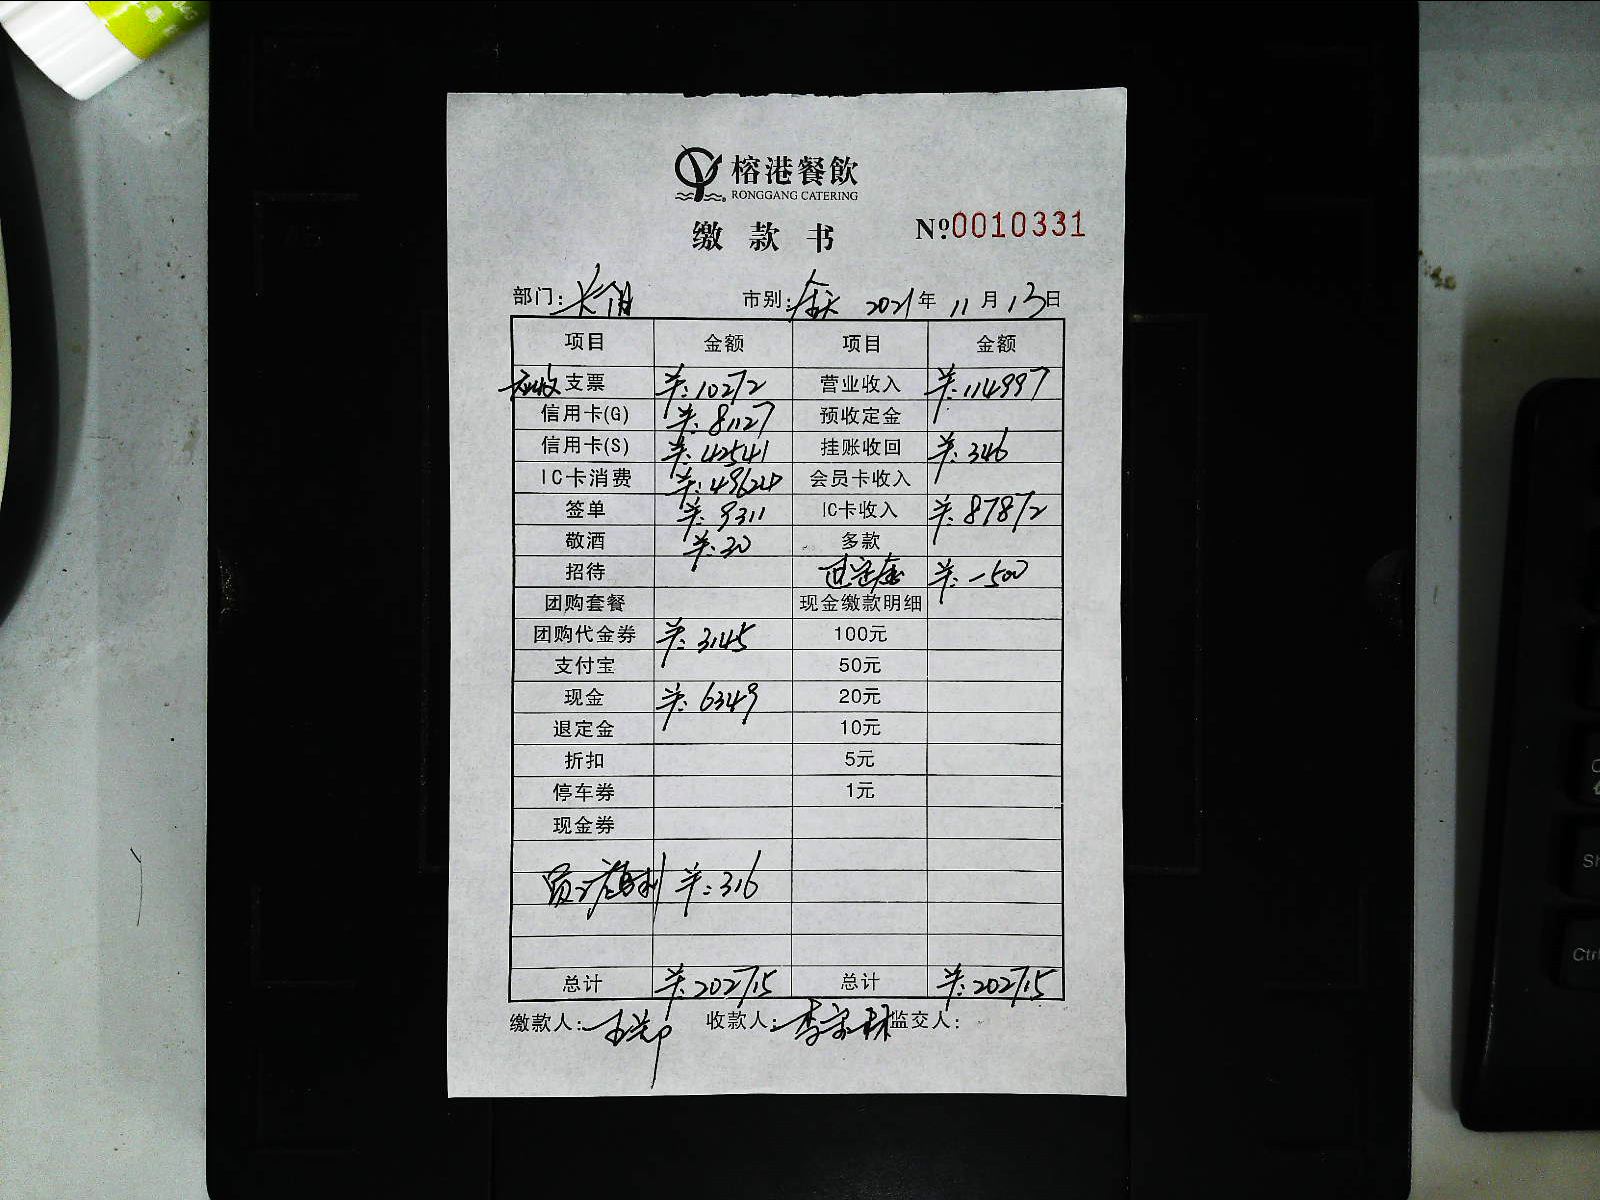 榕港餐飲
RONGGANG CATERING
缴款书
Nº.0010331
部门: 市别:全天 2021年11月13日
项目 金额 项目 金额
应收支票 羊:10272 营业收入 羊:114997
信用卡(G) 羊:8127 预收定金
信用卡(S) 羊:42541 挂账收回 羊:346
IC卡消费 羊:49624 会员卡收入
签单 羊:9311 IC卡收入 羊:87872
敬酒 羊:30 多款
招待 退定金 羊:-500
团购套餐 现金缴款明细
团购代金券 羊:3145 100元
支付宝 50元
现金 羊:6349 20元
退定金 10元
折扣 5元
停车券 1元
现金券
员工福利 羊:316
总计 羊:202715 总计 羊:202715
缴款人: 收款人: 监交人: